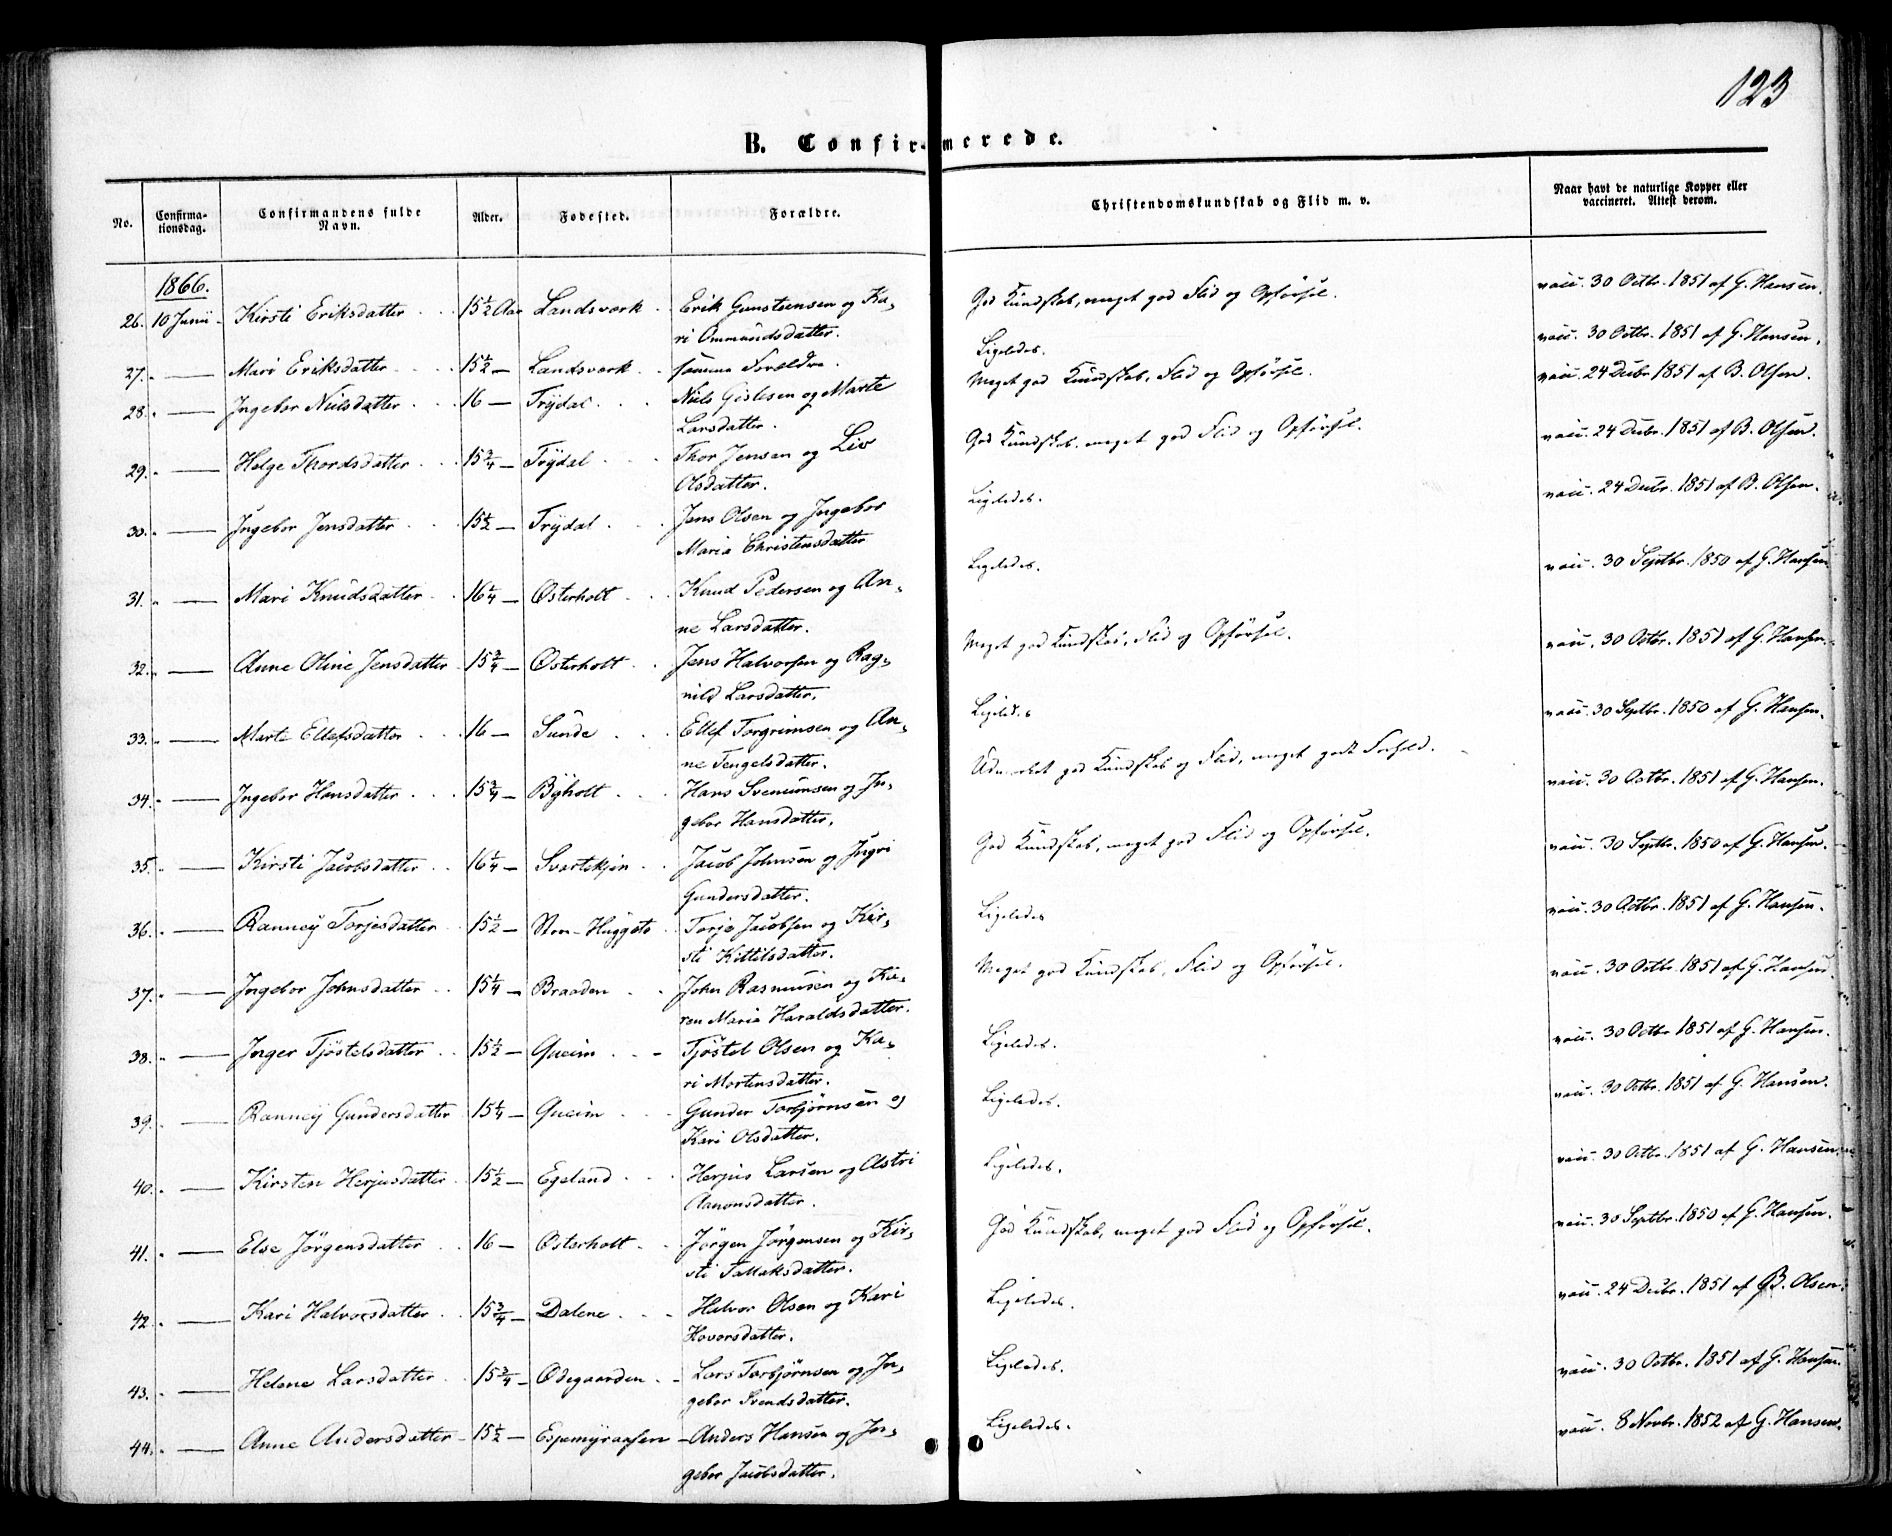 123
B. Confirmerede.
No. Confirmationsdag. Confirmandens fulde Navn. Alder. Fødested. Forældre. Christendomskundskab og Flid m. v. Naar havt de naturlige Kopper eller vaccineret. Attest derom.
1866.
26. 10 Junii Kirsti Eriksdatter 15 1/2 Aar Landsverk Erik Gunsteensen og Ka- God Kundskab, meget god Flid og Opførsel. vacc. 30 Octbr. 1851 af G. Hansen.
ri Ommundsdatter.
27. " — Mari Eriksdatter 15 1/2 — Landsverk samme Forældre. Ligeledes. vacc. 30 Octbr. 1851 af G. Hansen.
28. " — Ingebor Nielsdatter 16 — Trydal Niels Gislesen og Marte Meget god Kundskab, Flid og Opførsel. vacc. 24 Decbr. 1851 af B. Olsen.
Larsdatter.
29. " — Helge Thordsdatter 15 3/4 — Trydal Thor Jensen og Liv God Kundskab, meget god Flid og Opførsel. vacc. 24 Decbr. 1851 af B. Olsen.
Olsdatter.
30. " — Ingebor Jensdatter 15 1/2 — Trydal Jens Olsen og Ingebor Ligeledes. vacc. 24 Decbr. 1851 af B. Olsen.
Maria Christensdatter
31. " — Mari Knudsdatter 16 1/4 — Østerholt Knud Pedersen og An- Ligeledes. vacc. 30 Septbr. 1850 af G. Hansen
ne Larsdatter.
32. " — Anne Oline Jensdatter 15 3/4 — Østerholt Jens Halvorsen og Rag- Meget god Kundskab, Flid og Opførsel. vacc. 30 Octbr. 1851 af G. Hansen.
nild Larsdatter.
33. " — Marte Ellefsdatter 16 — Sunde Ellef Torgrimsen og An- Ligeledes vacc. 30 Septbr. 1850 af G. Hansen.
ne Tengelsdatter.
34. " — Ingebor Hansdatter 15 3/4 — Byholt Hans Svenumsen og In- Udmerket god Kundskab og Flid, meget godt Forhold. vacc. 30 Octbr. 1851 af G. Hansen.
gebor Hansdatter.
35. " — Kirsti Jacobsdatter 16 1/4 — Svartekjen Jacob Johnsen og Ingri God Kundskab, meget god Flid og Opførsel. vacc. 30 Septbr. 1850 af G. Hansen.
Gundersdatter.
36. " — Ranney Torjesdatter 15 1/2 — Huggeto Torje Jacobsen og Kir- Ligeledes vacc. 30 Octbr. 1851 af G. Hansen.
sti Kittilsdatter.
37. " — Ingebor Johnsdatter 15 1/4 — Braaden John Rasmusen og Ka- Meget god Kundskab, Flid og Opførsel. vacc. 30 Octbr. 1851 af G. Hansen.
ren Maria Haraldsdatter.
38. " — Inger Tjöstelsdatter 15 1/2 — Queim Tjöstel Olsen og Ka- Ligeledes. vacc. 30 Octbr. 1851 af G. Hansen.
ri Mortensdatter.
39. " — Ranney Gundersdatter 15 1/4 — Queim Gunder Torbjørnsen og Ligeledes. vacc. 30 Octbr. 1851 af G. Hansen.
Kari Olsdatter.
40. " — Kirsten Herjusdatter 15 1/2 — Egeland Herjus Larsen og Astri Ligeledes. vacc. 30 Octbr. 1851 af G. Hansen.
Aanonsdatter.
41. " — Else Jörgensdatter 16 — Østerholt Jörgen Jörgensen og Kir- God Kundskab, meget god Flid og Opførsel. vacc. 30 Septbr. 1850 af G. Hansen.
sti Tallaksdatter.
42. " — Kari Halvorsdatter 15 3/4 — Dalene Halvor Olsen og Kari Ligeledes. vacc. 24 Decbr. 1851 af B. Olsen.
Hovorsdatter.
43. " — Helene Larsdatter 15 3/4 — Ødegaarden Lars Torbjørnsen og In- Ligeledes. vacc. 30 Octbr. 1851 af G. Hansen.
gebor Svendsdatter.
44. " — Anne Andersdatter 15 1/2 — Espemyraasen Anders Hansen og In- Ligeledes. vacc. 8 Novbr. 1852 af G. Hansen.
gebor Jacobsdatter.